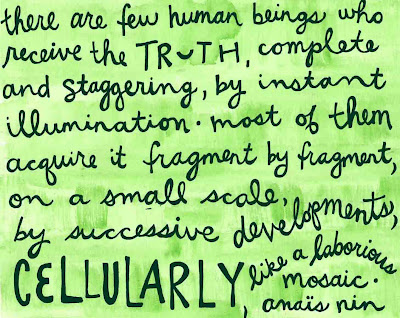 there are few human beings who
receive the TRUTH, complete
and staggering, by instant
illumination. most of them
acquire it fragment by fragment,
on a small scale,
by successive developments,
CELLULARLY,
like a laborious
mosaic.
anaïs nin